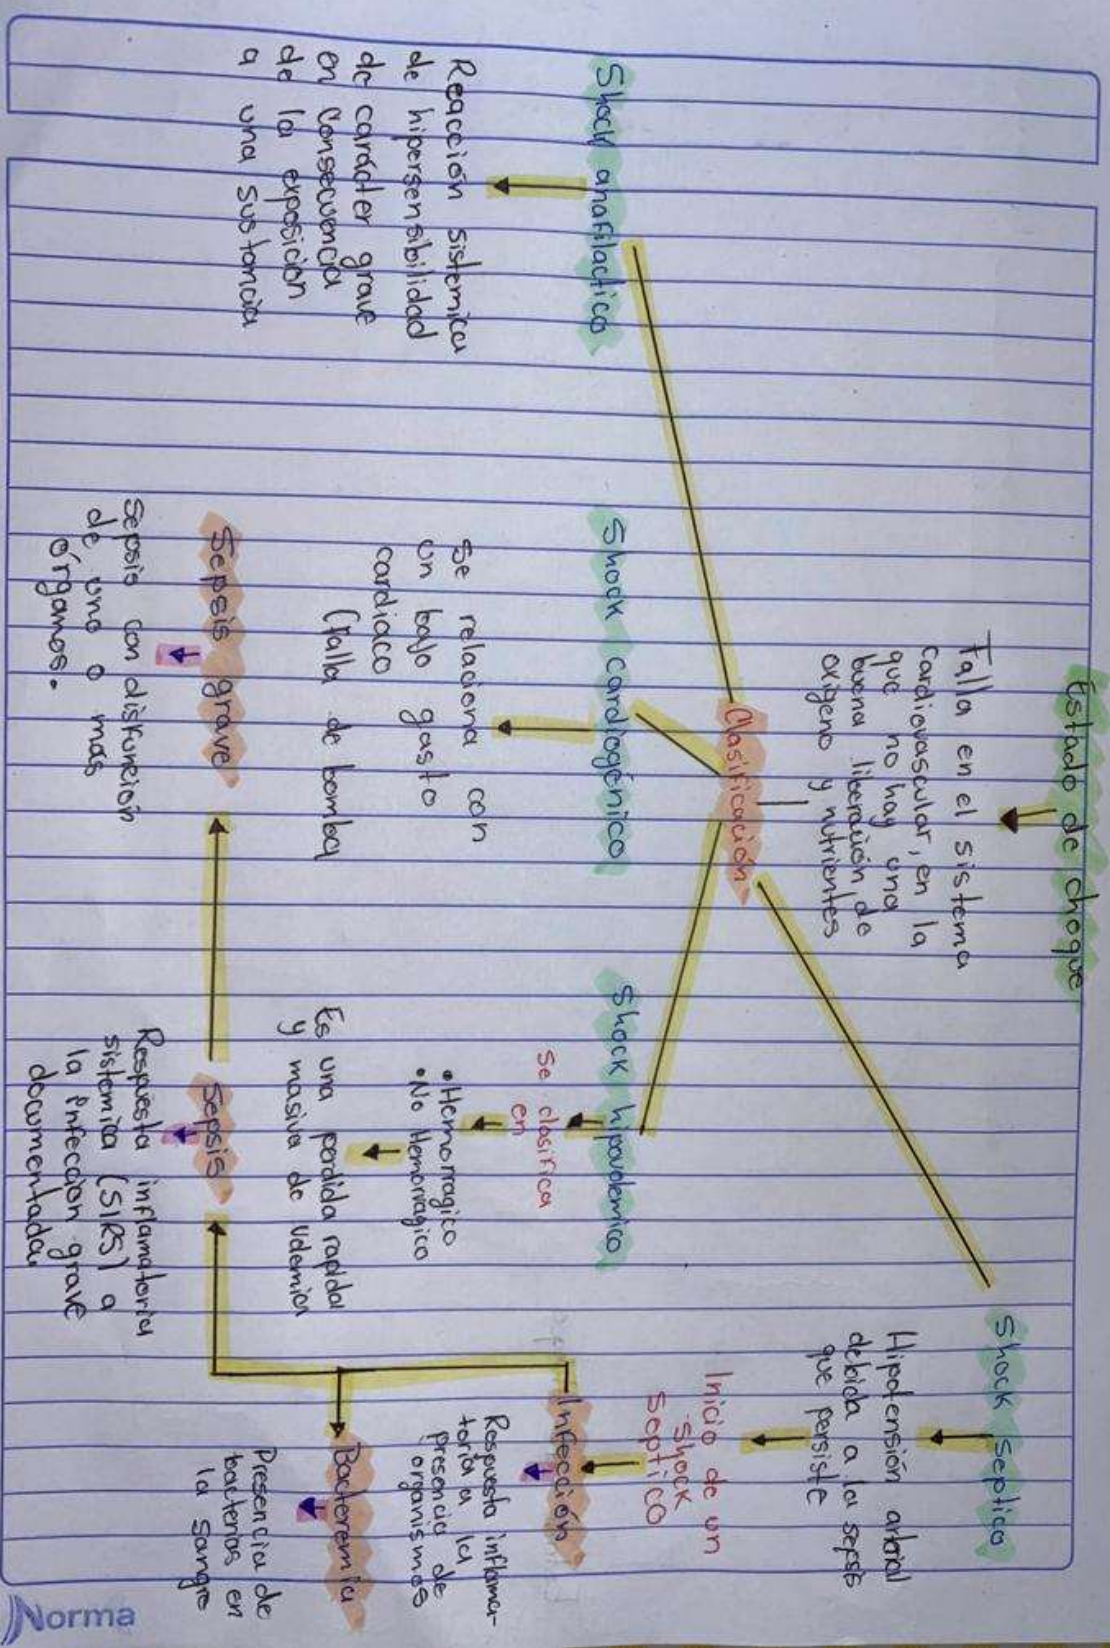 Estado de choque
Falla en el sistema
cardiovascular, en la
que no hay una
buena liberación de
oxigeno y nutrientes
Clasificación
Shock anafilactico
Reacción sistemica
de hipersensibilidad
de carácter grave
en consecuencia
de la exposición
a una sustancia
Shock cardiogénico
Se relaciona con
un bajo gasto
cardiaco
(falla de bomba)
Shock hipovolemico
Se clasifica
en
• Hemorragico
• No Hemorragico
Es una perdida rapida
y masiva de volemia
Shock septico
Hipotensión arterial
debida a la sepsis
que persiste
Inicio de un
shock
septico
Infección
Respuesta inflama-
toria a la
presencia de
organismos
Bacteremia
Presencia de
bacterias en
la sangre
Sepsis
Respuesta inflamatoria
sistemica (SIRS) a
la infección grave
documentada
Sepsis grave
Sepsis con disfunción
de uno o más
órganos.
Norma